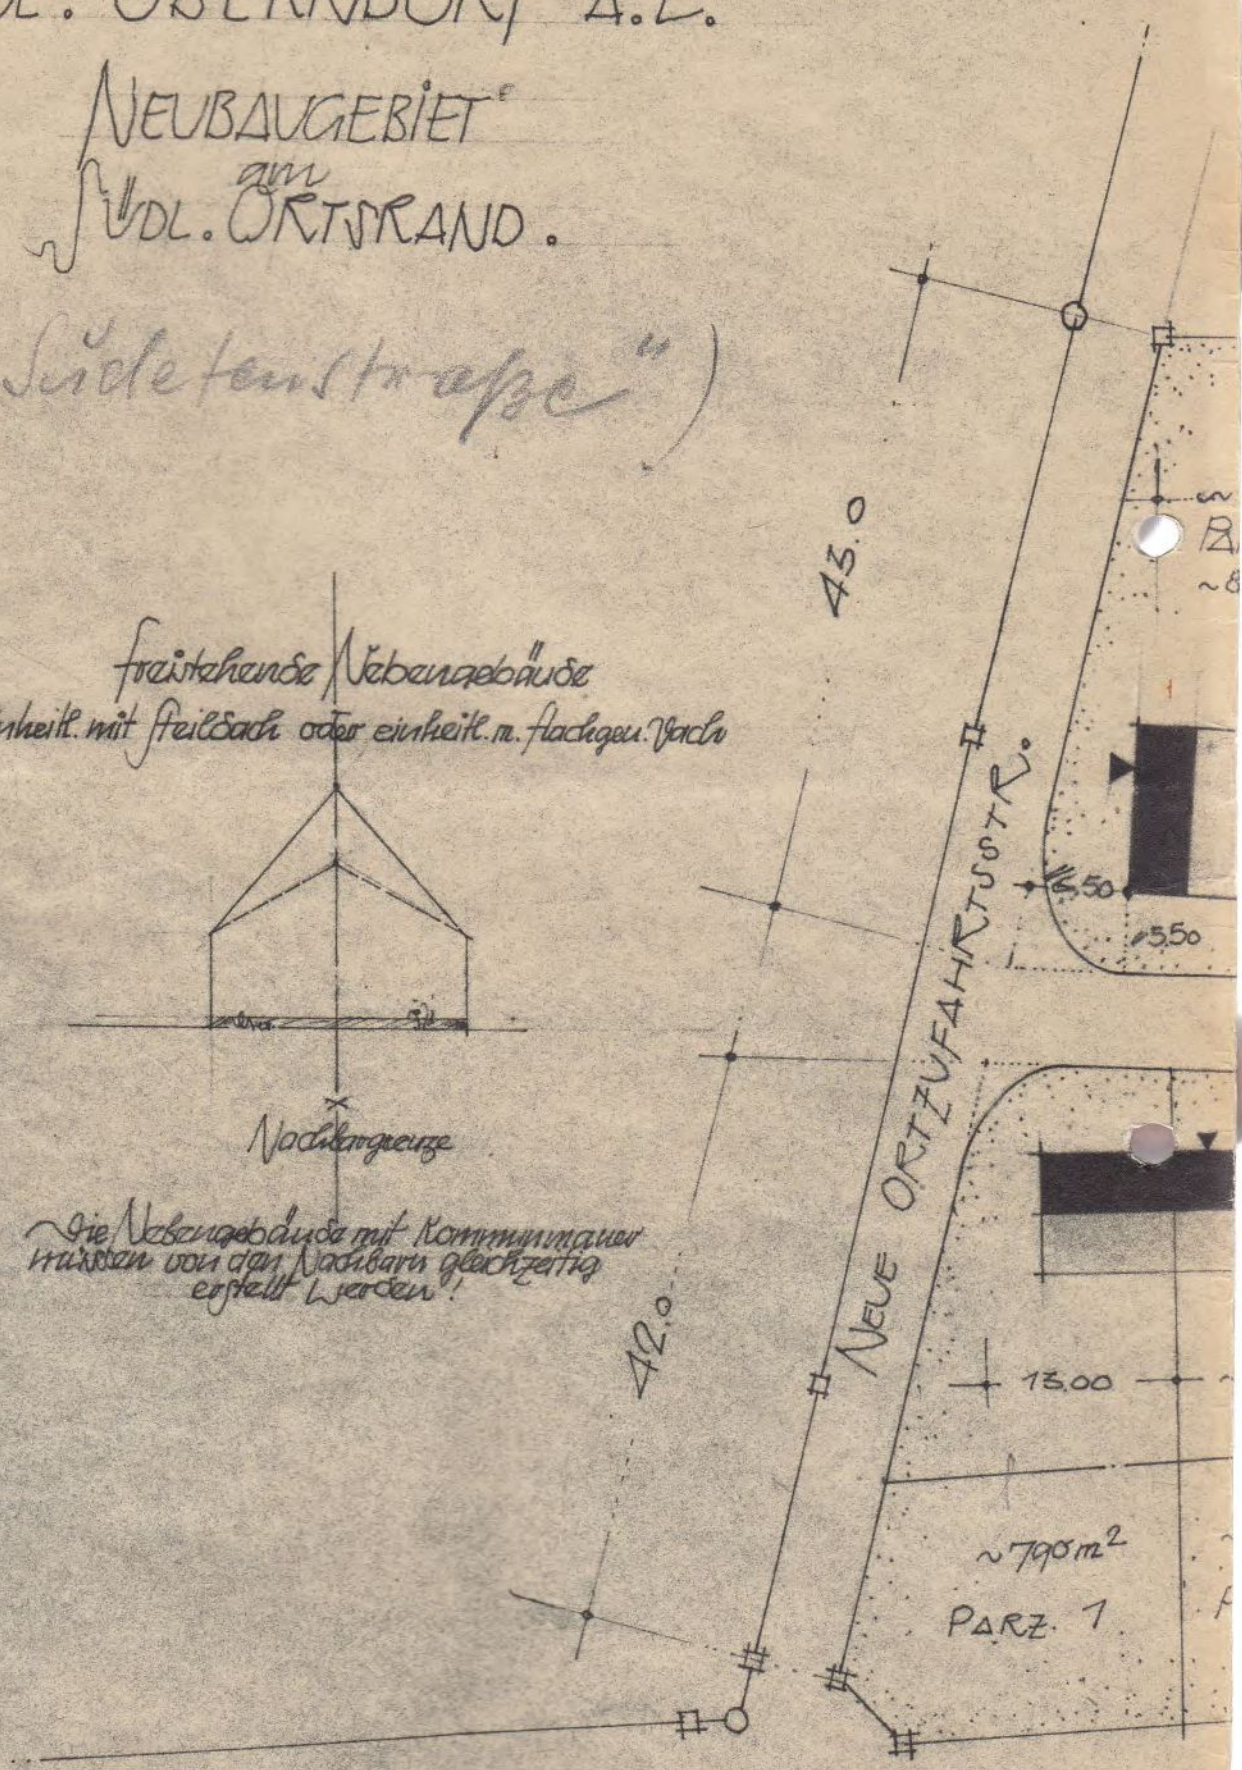 OBERNDORF A.L.
NEUBAUGEBIET
am
SÜDL. ORTSRAND.
Sudetenstraße")
freistehende Nebengebäude
einheitl. mit Steildach oder einheitl. m. flachgen. Dach
Nachbargrenze
Die Nebengebäude mit Kommunmauer
müssen von den Nachbarn gleichzeitig
erstellt werden!
43.0
42.0
NEUE ORTZUFAHRTSSTR.
1
6,50
5.50
13.00
~790m²
PARZ. 1